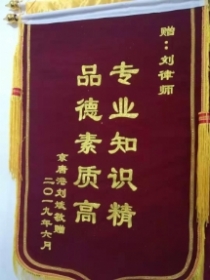 赠：刘律师
专业知识精
品德素质高
京唐港刘斌敬赠
二〇一九年六月